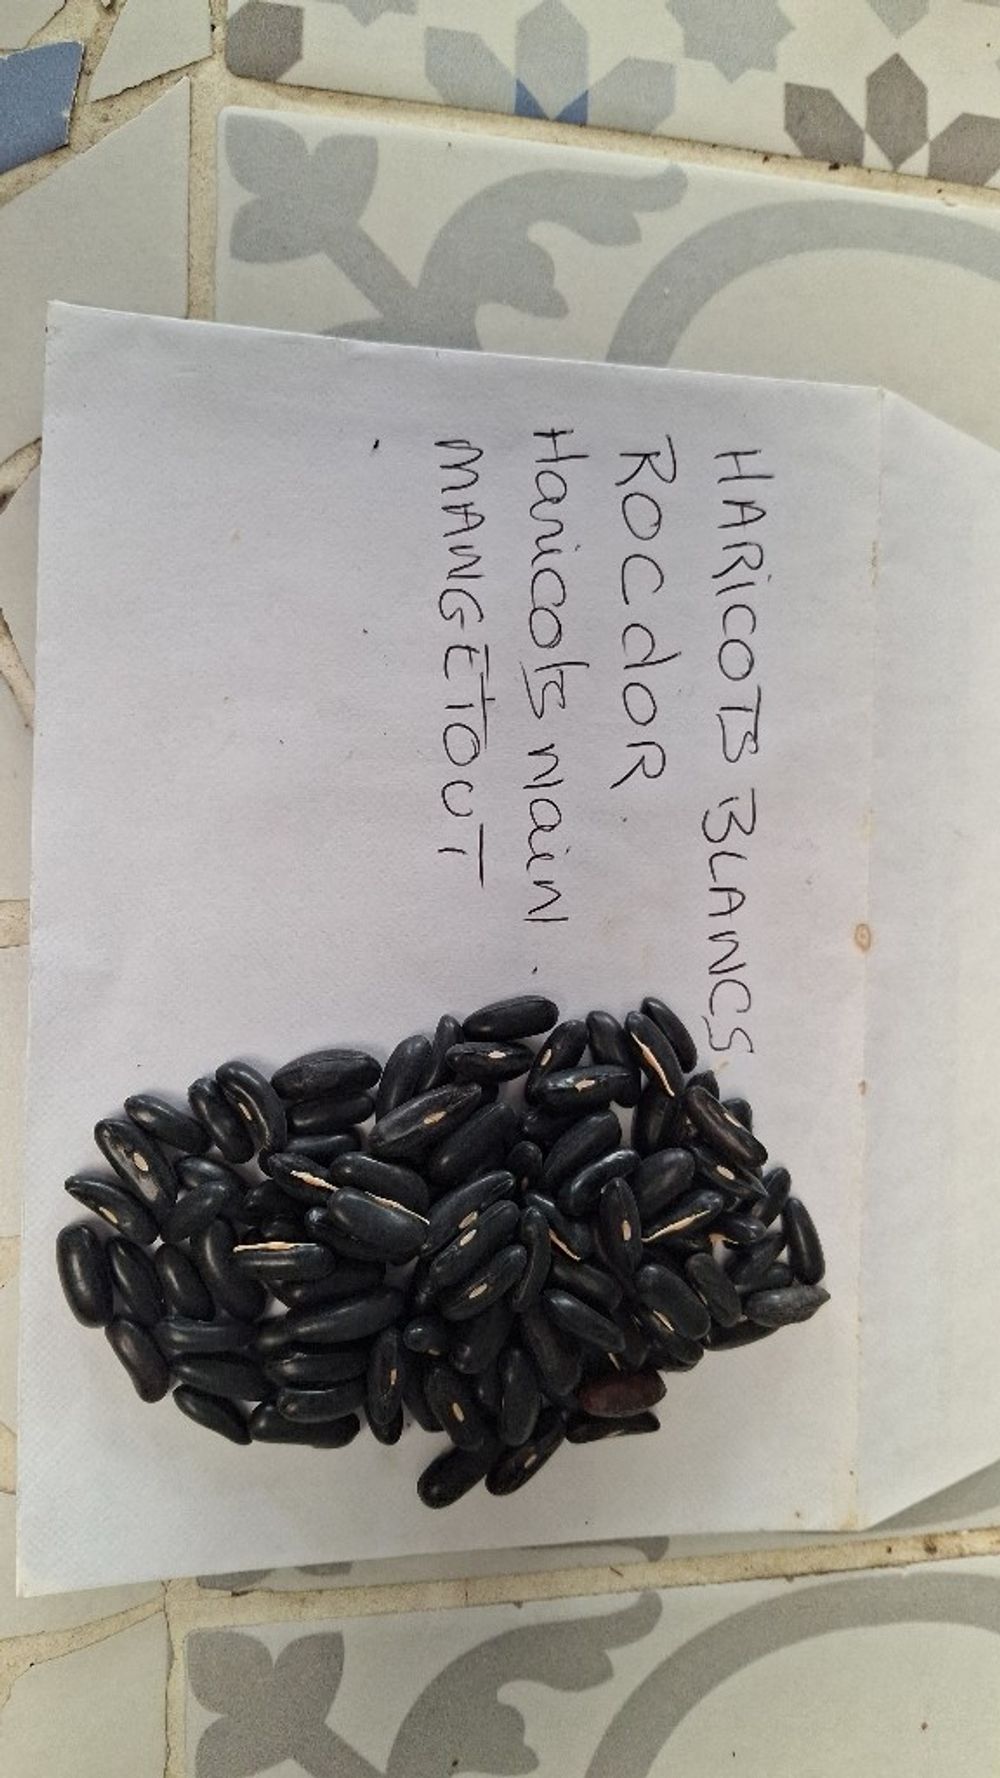 HARiCOTS BLANCS
ROCdOR
Haricots Nain
MANGETOUT